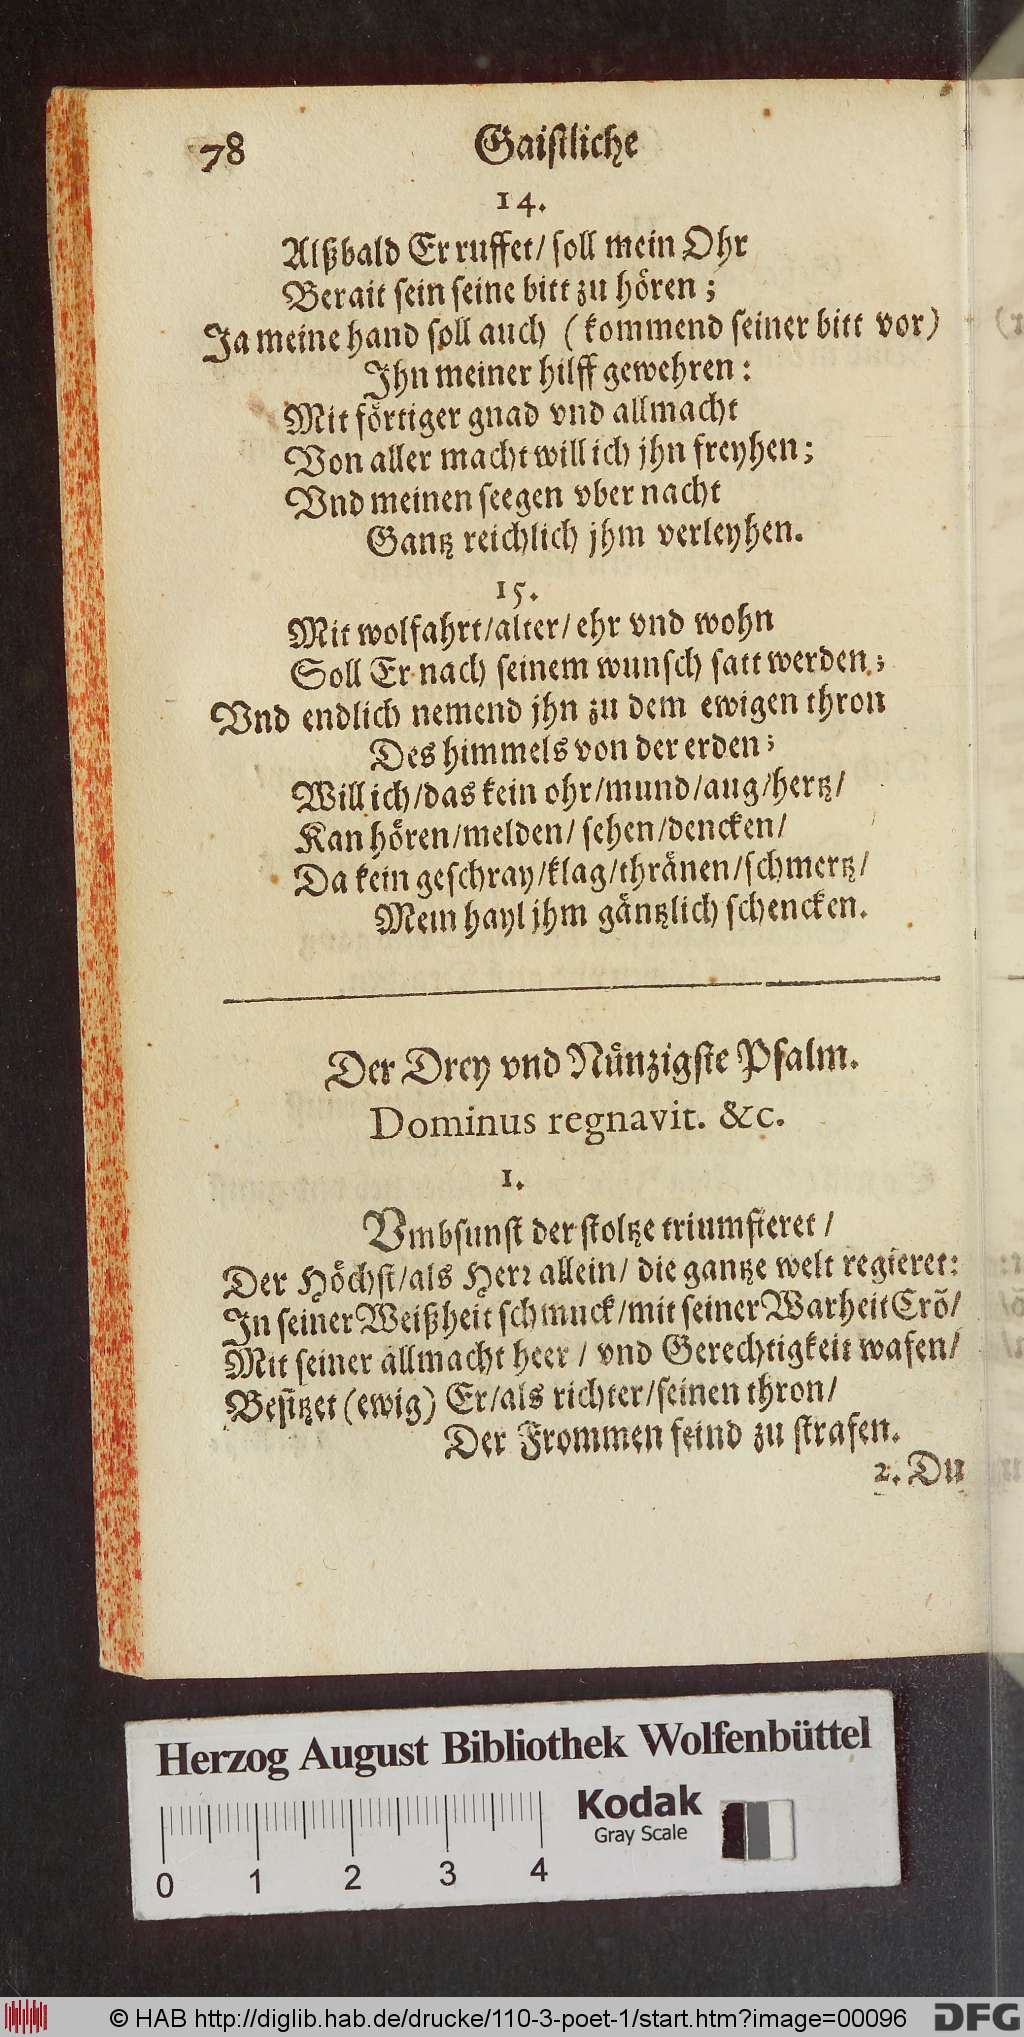 78 Gaiſtliche
14.
Alßbald Er ruffet/ ſoll mein Ohr
Berait ſein ſeine bitt zu hören;
Ja meine hand ſoll auch (kommend ſeiner bitt vor)
Jhn meiner hilff gewehren:
Mit förtiger gnad vnd allmacht
Von aller macht will ich jhn freyhen;
Vnd meinen ſeegen vber nacht
Gantz reichlich jhm verleyhen.
15.
Mit wolfahrt/alter/ ehr vnd wohn
Soll Er nach ſeinem wunſch ſatt werden;
Vnd endlich nemend jhn zu dem ewigen thron
Des himmels von der erden;
Will ich/das kein ohr/mund/aug/hertz/
Kan hören/melden/ ſehen/dencken/
Da kein geſchray/klag/thränen/ſchmertz/
Mein hayl jhm gäntzlich ſchencken.
Der Drey vnd Nünzigſte Pſalm.
Dominus regnavit. &c.
1.
Vmbſunſt der ſtoltze triumfieret /
Der Höchſt/als Herr allein/ die gantze welt regieret:
Jn ſeiner Weißheit ſchmuck/mit ſeiner Warheit Crō/
Mit ſeiner allmacht heer / vnd Gerechtigkeit wafen/
Beſitzet (ewig) Er/als richter/ſeinen thron/
Der Frommen feind zu ſtrafen.
2. Du
Herzog August Bibliothek Wolfenbüttel
Kodak
Gray Scale
0 1 2 3 4
© HAB http://diglib.hab.de/drucke/110-3-poet-1/start.htm?image=00096 DFG